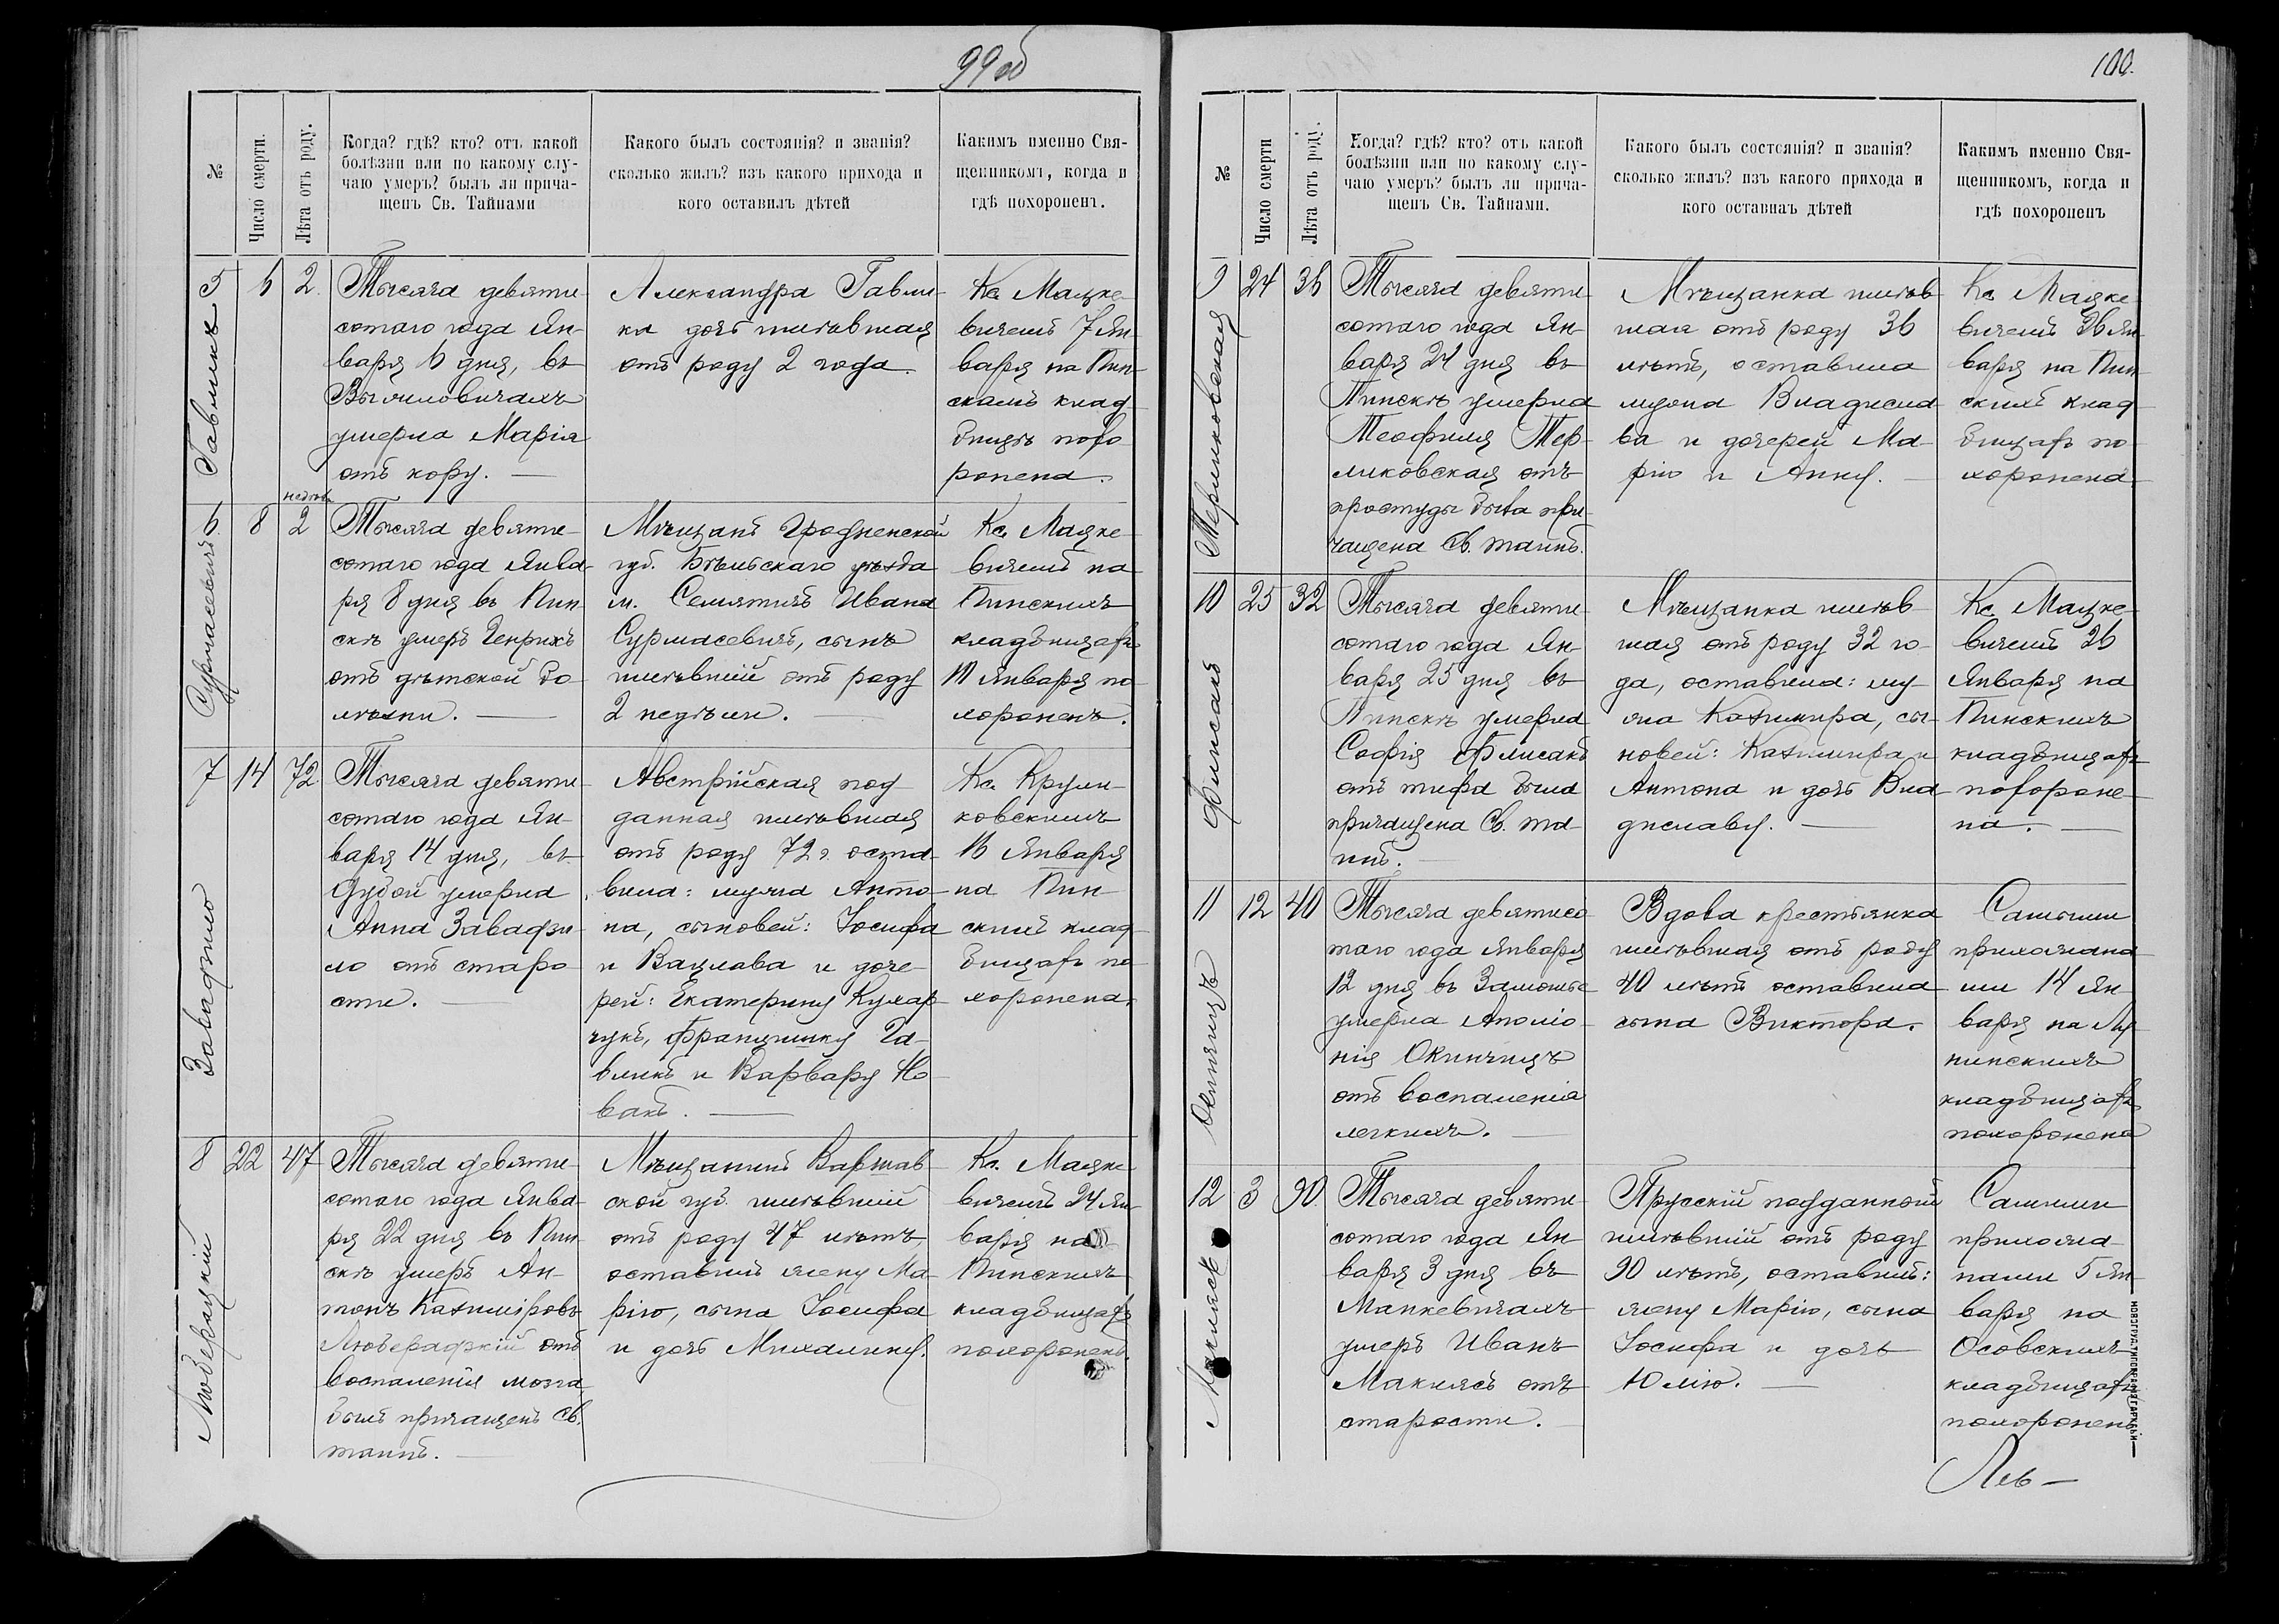 99 об
№
Число смерти.
Лѣта отъ роду.
Когда? гдѣ? кто? отъ какой
болѣзни или по какому слу-
чаю умеръ? былъ ли прича-
щенъ Св. Тайнами
Какого былъ состоянія? и званія?
сколько жилъ? изъ какого прихода и
кого оставилъ дѣтей
Какимъ именно Свя-
щенникомъ, когда и
гдѣ похороненъ.
Гавликъ
5
6
2.
Тысяча девяти-
сотаго года Ян-
варя 6 дня, въ
умерла Марія
отъ кору.
Александра Гавли-
ка дочь имѣвшая
отъ роду 2 года.
Кс. Мацке-
вичемъ 7 Ян-
варя на Пин-
скомъ клад-
бищѣ похо
ронена.
Сурмасевичъ
6
8
недѣли
2
Тысяча девяти-
сотаго года Янва-
ря 8 дня въ Пин-
скѣ умеръ Генрихъ
отъ дѣтской бо-
лѣзни.
Мѣщанъ Гродненской
губ. Бѣльскаго уѣзда
м. Семятичъ Ивана
Сурмасевичъ, сынъ
имѣвшій отъ роду
2 недѣли.
Кс. Мацке-
вичемъ на
Пинскихъ
кладбищахъ
10 Января по
хороненъ.
Завадзило
7
14
72.
Тысяча девяти-
сотаго года Ян-
варя 14 дня, въ
Дубой умерла
Анна Завадзи-
ло отъ старо
сти.
Австрійская под-
данная имѣвшая
отъ роду 72 г. оста-
вила: мужа Анто-
на, сыновей: Іосифа
и Вацлава и доче-
рей: Екатерину Кухар-
чукъ, Францишку Га-
вликъ и Варвару Но-
вакъ.
Кс. Крули-
ковскимъ
16 Января
на Пин-
скихъ клад-
бищахъ по
хоронена.
Люберацкій
8
22
47
Тысяча девяти-
сотаго года Янва-
ря 22 дня въ Пин-
скѣ умеръ Ан-
тонъ Казиміровъ
Любераджій отъ
воспаленія мозга
былъ причащенъ Св.
таинъ.
Мѣщанинъ Варшав-
ской губ. имѣвшій
отъ роду 47 лѣтъ,
оставилъ жену Ма-
рію, сына Іосифа
и дочь Михалину.
Кс. Мацке-
вичемъ 24 Ян-
варя на
Пинскихъ
кладбищахъ
похороненъ.
100.
№
Число смерти
Лѣта отъ роду.
Когда? гдѣ? кто? отъ какой
болѣзни или по какому слу-
чаю умеръ? былъ ли прича-
щенъ Св. Тайнами.
Какого былъ состоянія? и званія?
сколько жилъ? изъ какого прихода и
кого оставилъ дѣтей
Какимъ именно Свя-
щенникомъ, когда и
гдѣ похороненъ
Терликовская
9
24
36
Тысяча девяти-
сотаго года Ян-
варя 24 дня въ
Пинскѣ умерла
Теофиля Тер-
ликовская отъ
простуды была при-
чащена Св. таинъ.
Мѣщанка имѣв-
шая отъ роду 36
лѣтъ, оставила
мужа Владисла-
ва и дочерей Ма-
рію и Анну.
Кс. Мацке-
вичемъ 26 Ян-
варя на Пин-
скихъ клад-
бищахъ по-
хоронена.
Филисакъ
10
25
32
Тысяча девяти-
сотаго года Ян-
варя 25 дня въ
Пинскѣ умерла
Софія Филисакъ
отъ тифа была
причащена Св. та-
инъ.
Мѣщанка имѣв-
шая отъ роду 32 го-
да, оставила: му-
жа Казимира, сы-
новей: Казимира и
Антона и дочь Вла-
диславу.
Кс. Мацке-
вичемъ 26
Января на
Пинскихъ
кладбищахъ
похороне-
на.
Окинчицъ
11
12
40
Тысяча девятисо-
таго года Января
12 дня въ Замошье
умерла Аполо-
нія Окинчицъ
отъ воспаленія
легкихъ.
Вдова крестьянка
имѣвшая отъ роду
40 лѣтъ оставила
сына Виктора.
Самыми
прихожана-
ми 14 Ян-
варя на Лу-
нинскихъ
кладбищахъ
похоронена
12
3
90.
Тысяча девяти-
сотаго года Ян-
варя 3 дня въ
Манкевичахъ
умеръ Иванъ
Маклясъ отъ
старости.
Прусскій подданный
имѣвшій отъ роду
90 лѣтъ, оставилъ:
жену Марію, сына
Іосифа и дочь
Юлію.
Самими
прихожа-
нами 5 Ян-
варя на
Осовскихъ
кладбищахъ
похороненъ